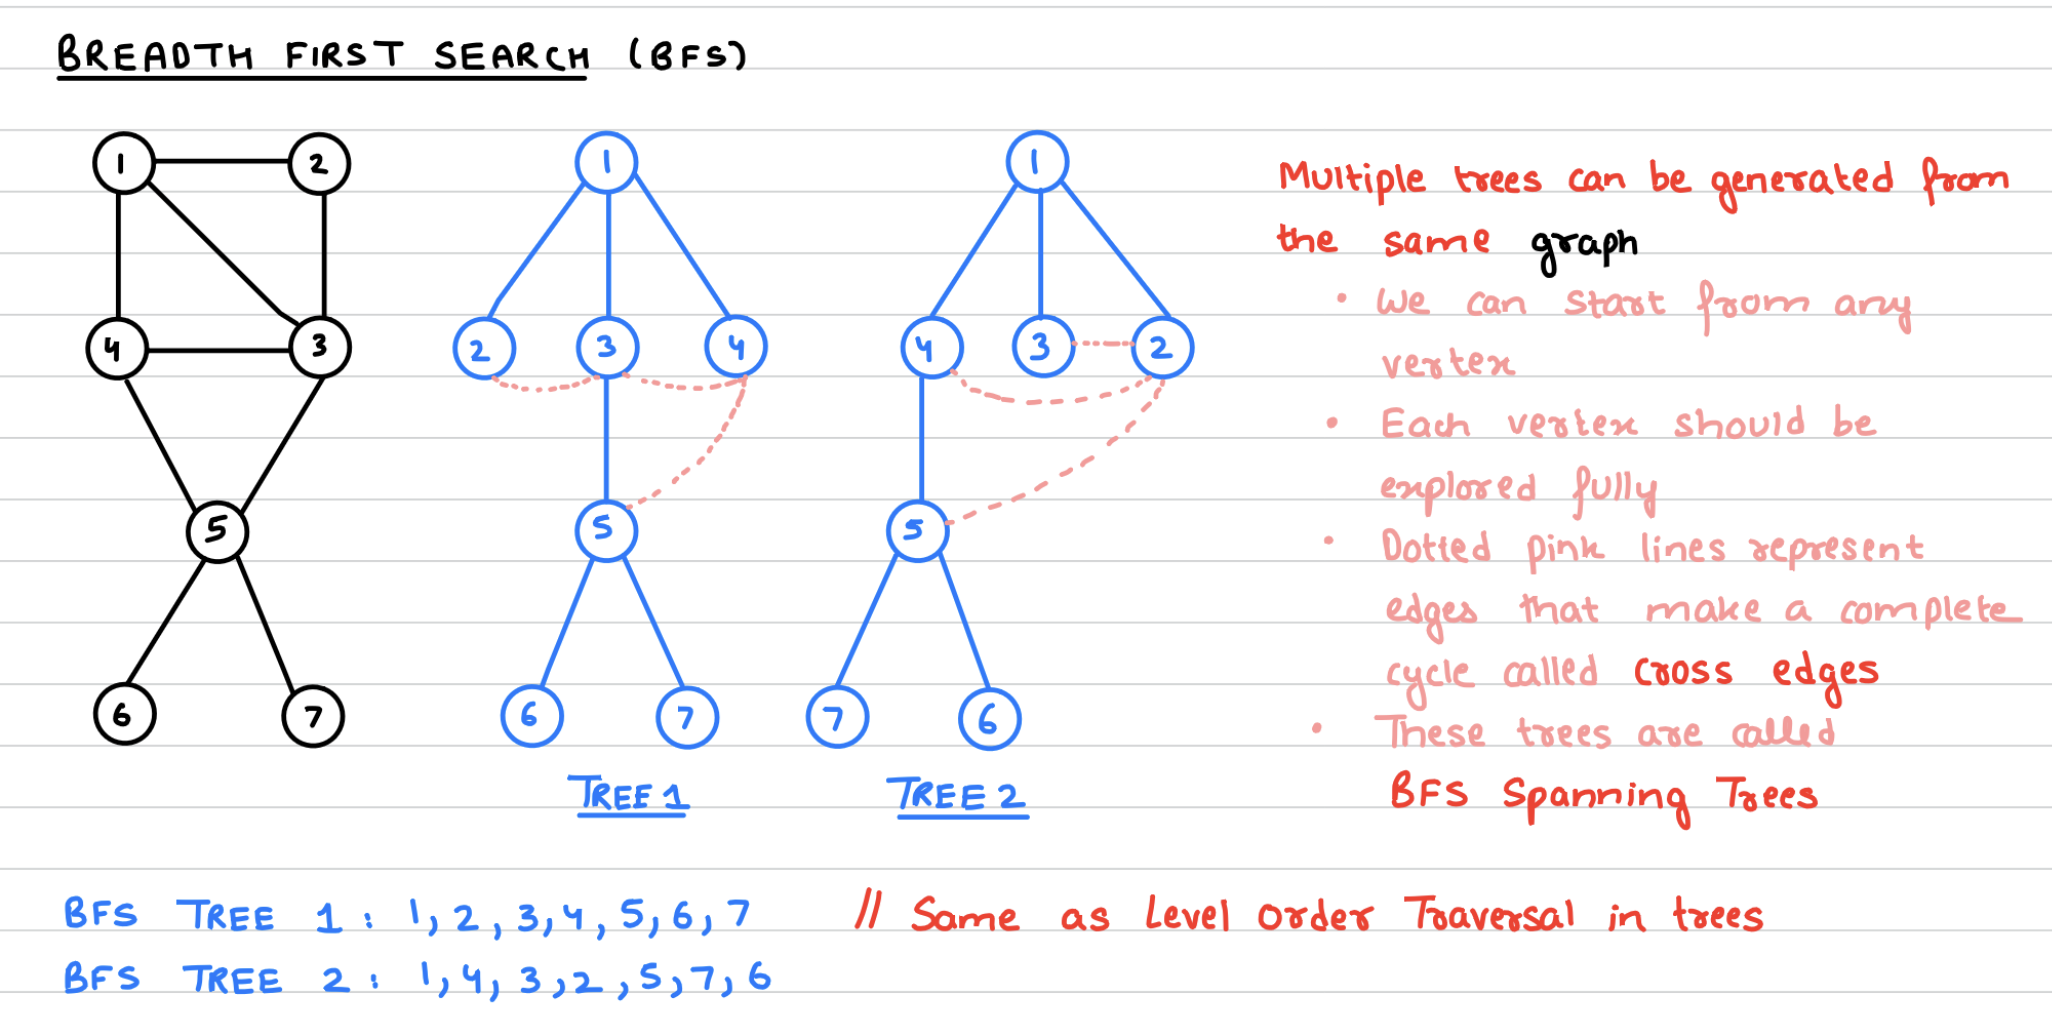 BREADTH FIRST SEARCH (BFS)
1 2
4 3
5
6 7
1
2 3 4
5
6 7
TREE 1
1
4 3 2
5
7 6
TREE 2
Multiple trees can be generated from
the same graph
• We can start from any
vertex
• Each vertex should be
explored fully
• Dotted pink lines represent
edges that make a complete
cycle called cross edges
• These trees are called
BFS Spanning Trees
BFS TREE 1 : 1, 2, 3, 4, 5, 6, 7 // Same as Level Order Traversal in trees
BFS TREE 2 : 1, 4, 3, 2, 5, 7, 6